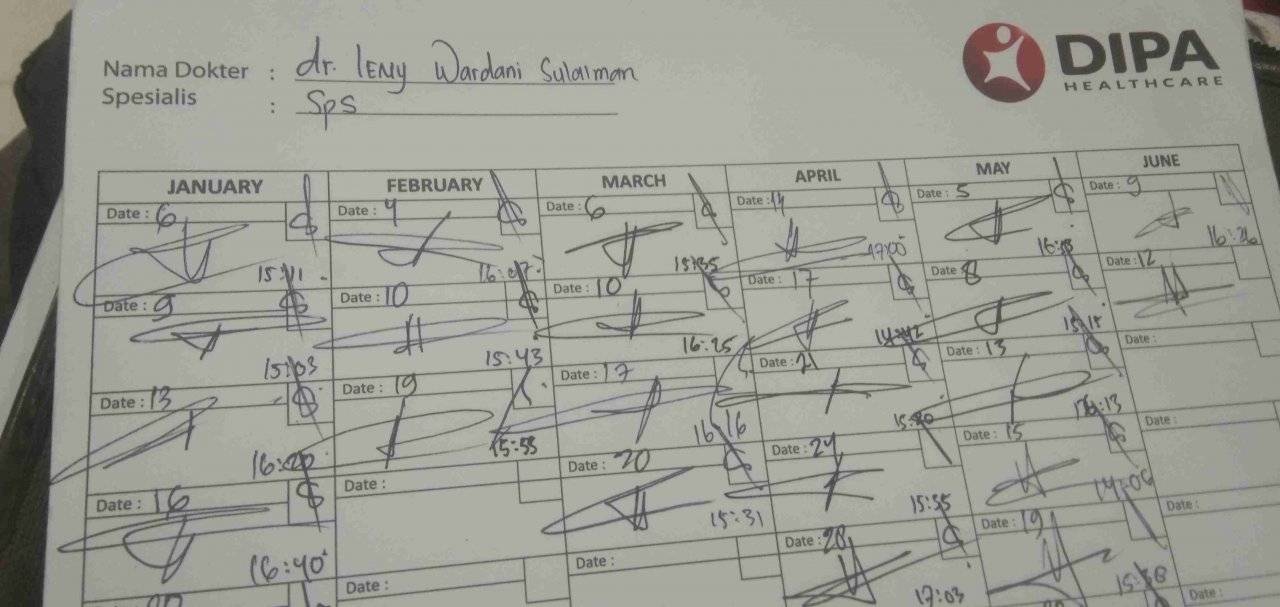 DIPA
HEALTHCARE
Nama Dokter : dr. lENy Wardani Sulaiman
Spesialis : Sps
JANUARY FEBRUARY MARCH APRIL MAY JUNE
Date : 6 Date : 4 Date : 6 Date : 14 Date : 5 Date : 9
15:11 16:07 15:35 17:00 16:26
Date : 9 Date : 10 Date : 10 Date : 17 Date : 8 Date : 12
15:03 15:43 16:25 14:42 15:15
Date : 13 Date : 19 Date : 17 Date : 21 Date : 13 Date :
16:20 15:55 16:16 16:13
Date : 16 Date : Date : 20 Date : 24 Date : 15 Date :
16:40 15:31 15:55 14:06
Date : Date : Date : 28 Date : 19 Date :
17:03 15:38
Date :